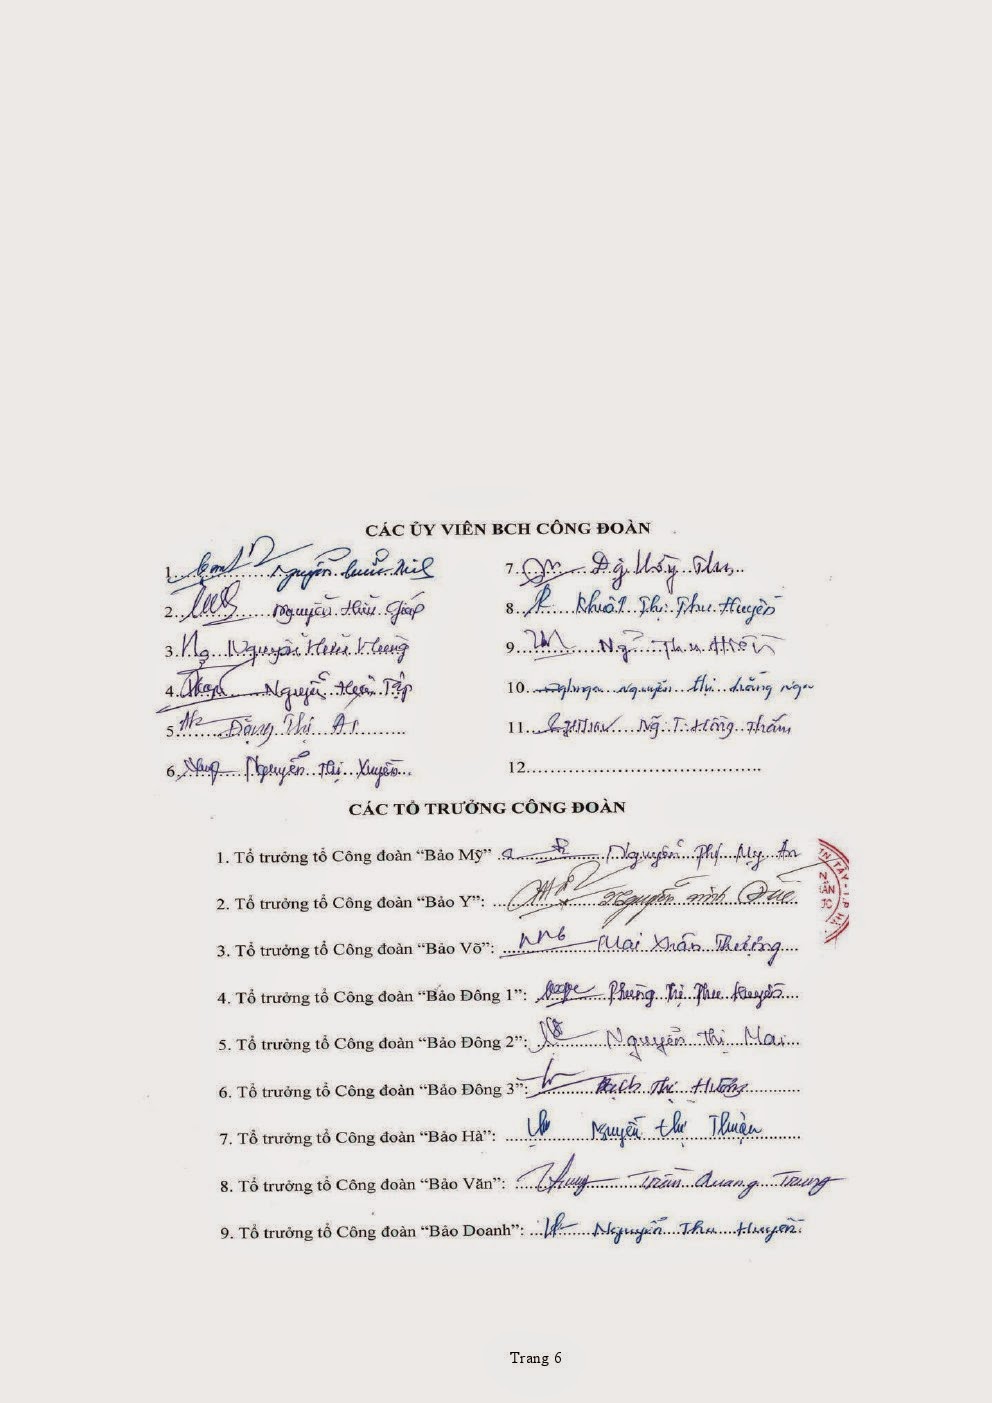 CÁC ỦY VIÊN BCH CÔNG ĐOÀN
1. Nguyễn
2. Nguyễn Hữu Giáp
3. Nguyễn Hữu
4. Nguyễn Hữu Tập
5. Đặng Thị
6. Nguyễn Thị Xuyến
7.
8. Khuất Thị Thu Huyền
9. Ng Thu
10. Nguyễn Thị
11. Ng T. Hồng Thắm
12.
CÁC TỔ TRƯỞNG CÔNG ĐOÀN
1. Tổ trưởng tổ Công đoàn “Bảo Mỹ” Nguyễn Thị Mỵ An
2. Tổ trưởng tổ Công đoàn “Bảo Y”: Nguyễn Minh Quế
3. Tổ trưởng tổ Công đoàn “Bảo Võ”: Mai Xuân Thưởng
4. Tổ trưởng tổ Công đoàn “Bảo Đông 1”: Phùng Thị Thu Huyền
5. Tổ trưởng tổ Công đoàn “Bảo Đông 2”: Nguyễn Thị Mai
6. Tổ trưởng tổ Công đoàn “Bảo Đông 3”: Thị Hương
7. Tổ trưởng tổ Công đoàn “Bảo Hà”: Nguyễn Thị Thuận
8. Tổ trưởng tổ Công đoàn “Bảo Văn”: Trần Quang Trung
9. Tổ trưởng tổ Công đoàn “Bảo Doanh”: Nguyễn Thu Huyền
Trang 6